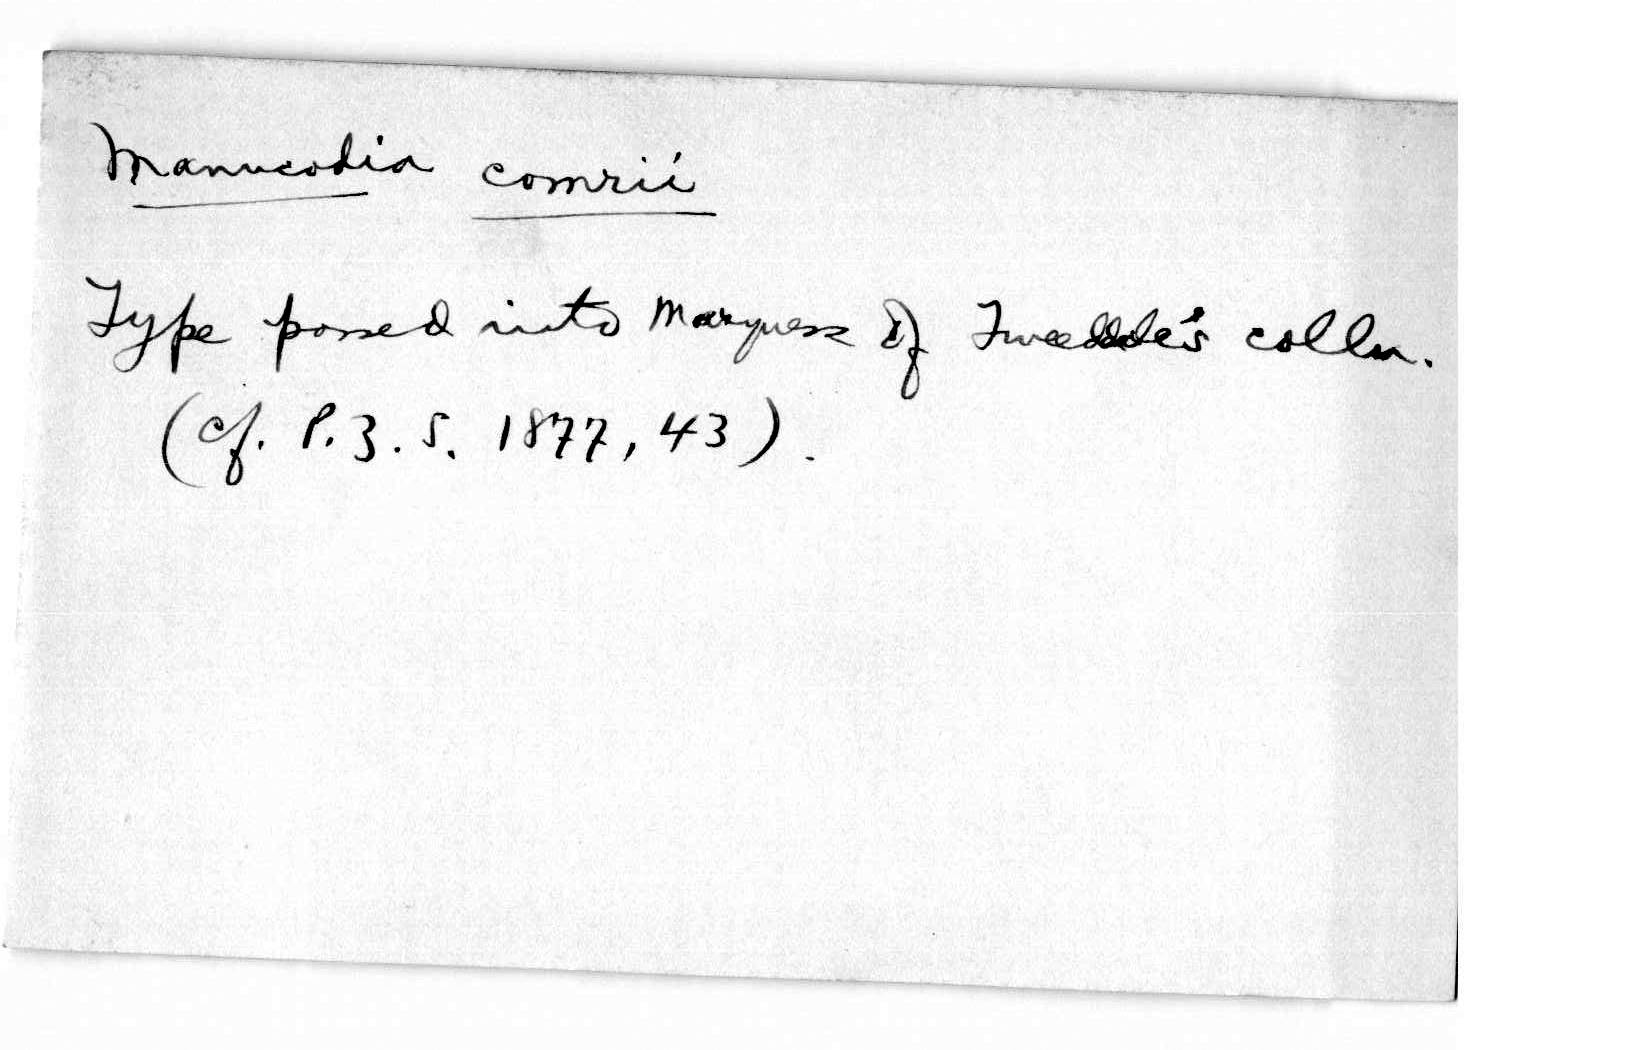 Manucodia comrii
Type passed into Marquess of Tweeddale's colln.
(cf. P.Z.S. 1877, 43).